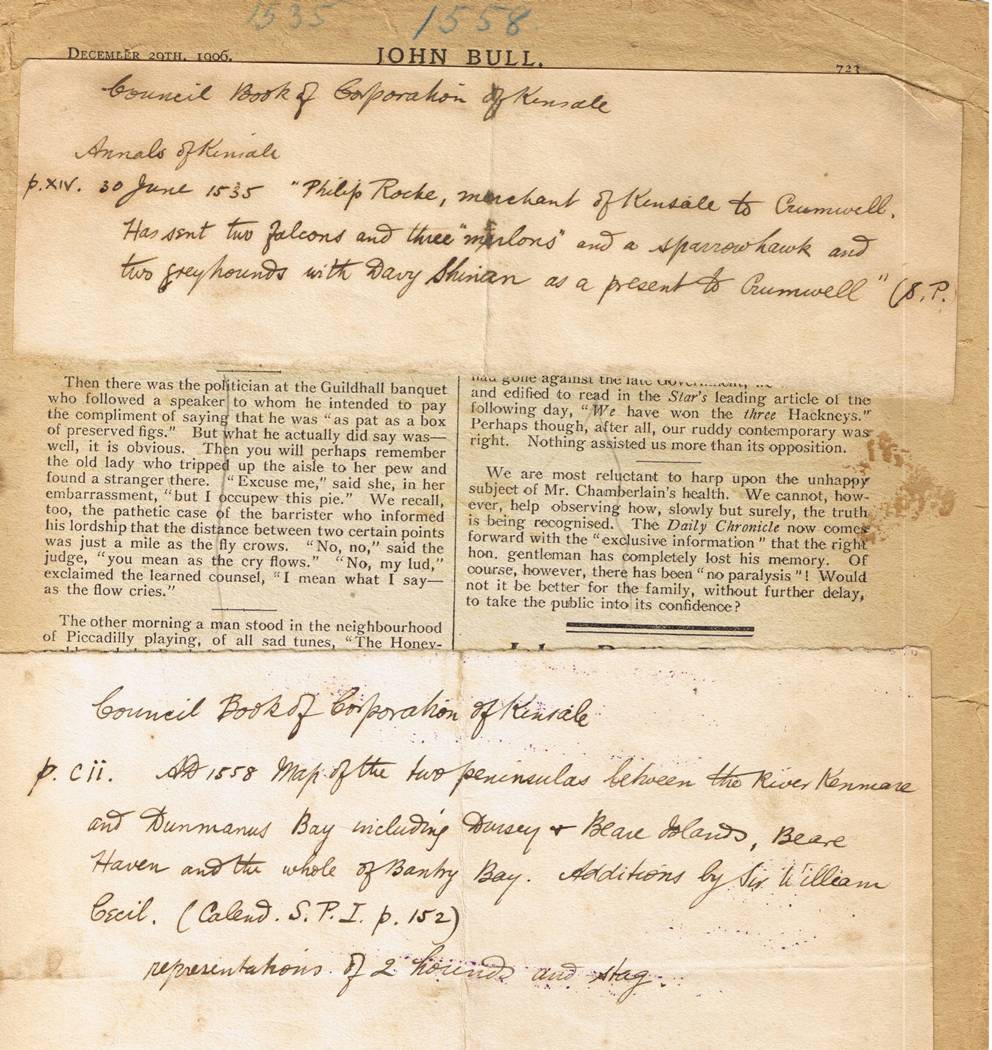 1535 1558
DECEMBER 29TH, 1906. JOHN BULL. 723
Council Book of Corporation of Kinsale
Annals of Kinsale
p. XIV. 30 June 1535 "Philip Roche, merchant of Kinsale to Crumwell.
Has sent two falcons and three "merlons" and a sparrowhawk and
two greyhounds with Davy Shinan as a present to Crumwell" (S.P.
Then there was the politician at the Guildhall banquet
who followed a speaker to whom he intended to pay
the compliment of saying that he was "as pat as a box
of preserved figs." But what he actually did say was—
well, it is obvious. Then you will perhaps remember
the old lady who tripped up the aisle to her pew and
found a stranger there. "Excuse me," said she, in her
embarrassment, "but I occupew this pie." We recall,
too, the pathetic case of the barrister who informed
his lordship that the distance between two certain points
was just a mile as the fly crows. "No, no," said the
judge, "you mean as the cry flows." "No, my lud,"
exclaimed the learned counsel, "I mean what I say—
as the flow cries."
The other morning a man stood in the neighbourhood
of Piccadilly playing, of all sad tunes, "The Honey-
had gone against the late
and edified to read in the Star's leading article of the
following day, "We have won the three Hackneys."
Perhaps though, after all, our ruddy contemporary was
right. Nothing assisted us more than its opposition.
We are most reluctant to harp upon the unhappy
subject of Mr. Chamberlain's health. We cannot, how-
ever, help observing how, slowly but surely, the truth
is being recognised. The Daily Chronicle now comes
forward with the "exclusive information" that the right
hon. gentleman has completely lost his memory. Of
course, however, there has been "no paralysis"! Would
not it be better for the family, without further delay,
to take the public into its confidence?
Council Book of Corporation of Kinsale
p. cii. AD 1558 Map of the two peninsulas between the River Kenmare
and Dunmanus Bay including Dursey & Beare Islands, Beare
Haven and the whole of Bantry Bay. Additions by Sir William
Cecil. (Calend. S.P.I. p. 152)
representations of 2 hounds and stag.